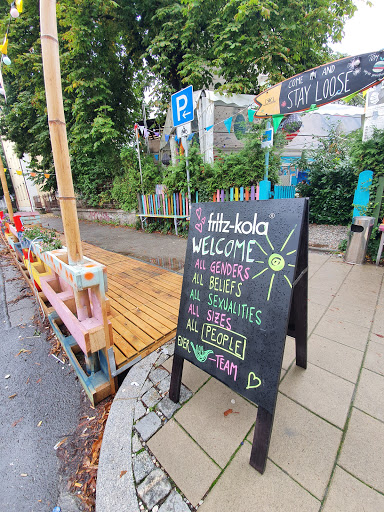 P
COME IN AND
STAY LOOSE
fritz-kola®
WELCOME
ALL GENDERS
ALL BELIEFS
ALL SEXUALITIES
ALL SIZES
ALL PEOPLE
EUER
-TEAM